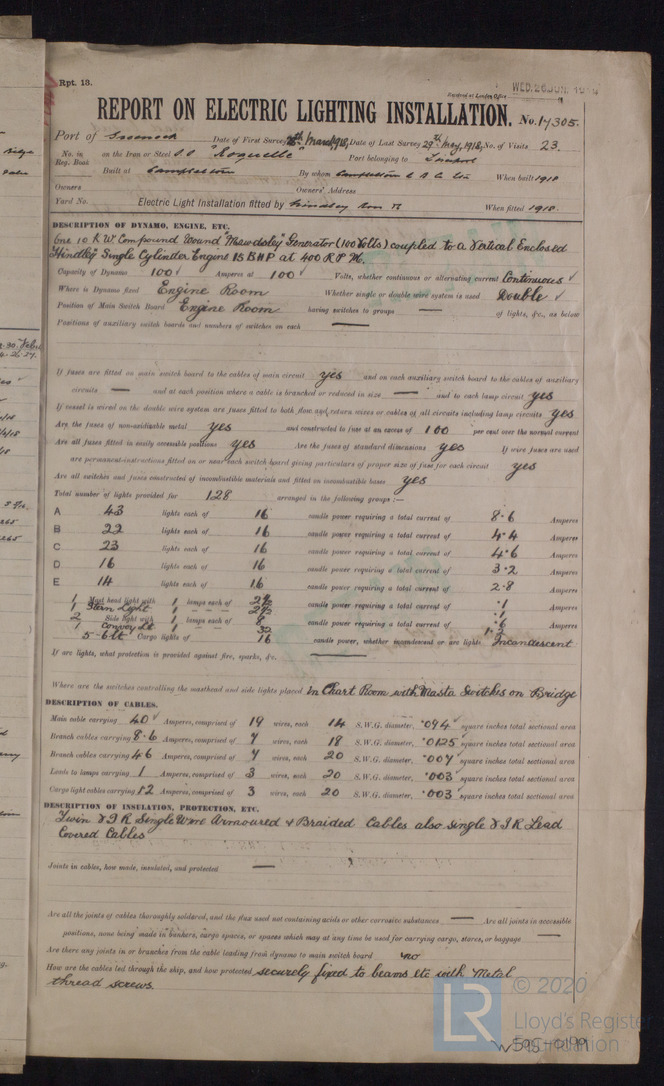 Rpt. 13.
Received at London Office WED. 26 JUN. 1918
REPORT ON ELECTRIC LIGHTING INSTALLATION. No. 17305.
Port of Greenock Date of First Survey 25th March 1918, Date of Last Survey 29th May, 1918, No. of Visits 23.
No. in Reg. Book on the Iron or Steel S.S. "Roquelle" Port belonging to Liverpool
Built at Campbeltown By whom Campbeltown S.B. Co. Ltd When built 1918
Owners Owners' Address
Yard No. Electric Light Installation fitted by When fitted 1918.
DESCRIPTION OF DYNAMO, ENGINE, ETC.
One 10 K.W. Compound Wound "Mawdsley" Generator (100 Volts) coupled to a Vertical Enclosed
"Hindley" Single Cylinder Engine 15 BHP at 400 R P M.
Capacity of Dynamo 100 Amperes at 100 Volts, whether continuous or alternating current Continuous
Where is Dynamo fixed Engine Room Whether single or double wire system is used Double
Position of Main Switch Board Engine Room having switches to groups — of lights, &c., as below
Positions of auxiliary switch boards and numbers of switches on each —
If fuses are fitted on main switch board to the cables of main circuit yes and on each auxiliary switch board to the cables of auxiliary
circuits — and at each position where a cable is branched or reduced in size — and to each lamp circuit yes
If vessel is wired on the double wire system are fuses fitted to both flow and return wires or cables of all circuits including lamp circuits yes
Are the fuses of non-oxidizable metal yes and constructed to fuse at an excess of 100 per cent over the normal current
Are all fuses fitted in easily accessible positions yes Are the fuses of standard dimensions yes If wire fuses are used
are permanent instructions fitted on or near each switch board giving particulars of proper size of fuse for each circuit yes
Are all switches and fuses constructed of incombustible materials and fitted on incombustible bases yes
Total number of lights provided for 128 arranged in the following groups :—
A 43 lights each of 16 candle power requiring a total current of 8.6 Amperes
B 22 lights each of 16 candle power requiring a total current of 4.4 Amperes
C 23 lights each of 16 candle power requiring a total current of 4.6 Amperes
D 16 lights each of 16 candle power requiring a total current of 3.2 Amperes
E 14 lights each of 16 candle power requiring a total current of 2.8 Amperes
1 Mast head light with 1 lamps each of candle power requiring a total current of .1 Amperes
1 Stern Light 1 .1
2 Side light with 1 lamps each of 8 candle power requiring a total current of .6 Amperes
1 Convoy Lt 1 32
5-6 Lt Cargo lights of 16 candle power, whether incandescent or arc lights Incandescent
If arc lights, what protection is provided against fire, sparks, &c. —
Where are the switches controlling the masthead and side lights placed In Chart Room with Masta Switches on Bridge
DESCRIPTION OF CABLES.
Main cable carrying 40 Amperes, comprised of 19 wires, each 14 S.W.G. diameter, .094 square inches total sectional area
Branch cables carrying 8.6 Amperes, comprised of 7 wires, each 18 S.W.G. diameter, .0125 square inches total sectional area
Branch cables carrying 4.6 Amperes, comprised of 7 wires, each 20 S.W.G. diameter, .007 square inches total sectional area
Leads to lamps carrying 1 Amperes, comprised of 3 wires, each 20 S.W.G. diameter, .003 square inches total sectional area
Cargo light cables carrying 1.2 Amperes, comprised of 3 wires, each 20 S.W.G. diameter, .003 square inches total sectional area
DESCRIPTION OF INSULATION, PROTECTION, ETC.
Twin V I R Single Wire Armoured & Braided Cables also single V I R Lead
Covered Cables
Joints in cables, how made, insulated, and protected —
Are all the joints of cables thoroughly soldered, and the flux used not containing acids or other corrosive substances — Are all joints in accessible
positions, none being made in bunkers, cargo spaces, or spaces which may at any time be used for carrying cargo, stores, or baggage —
Are there any joints in or branches from the cable leading from dynamo to main switch board no
How are the cables led through the ship, and how protected securely fixed to beams etc with Metal
thread screws.
LR © 2020
Lloyd's Register
Foundation